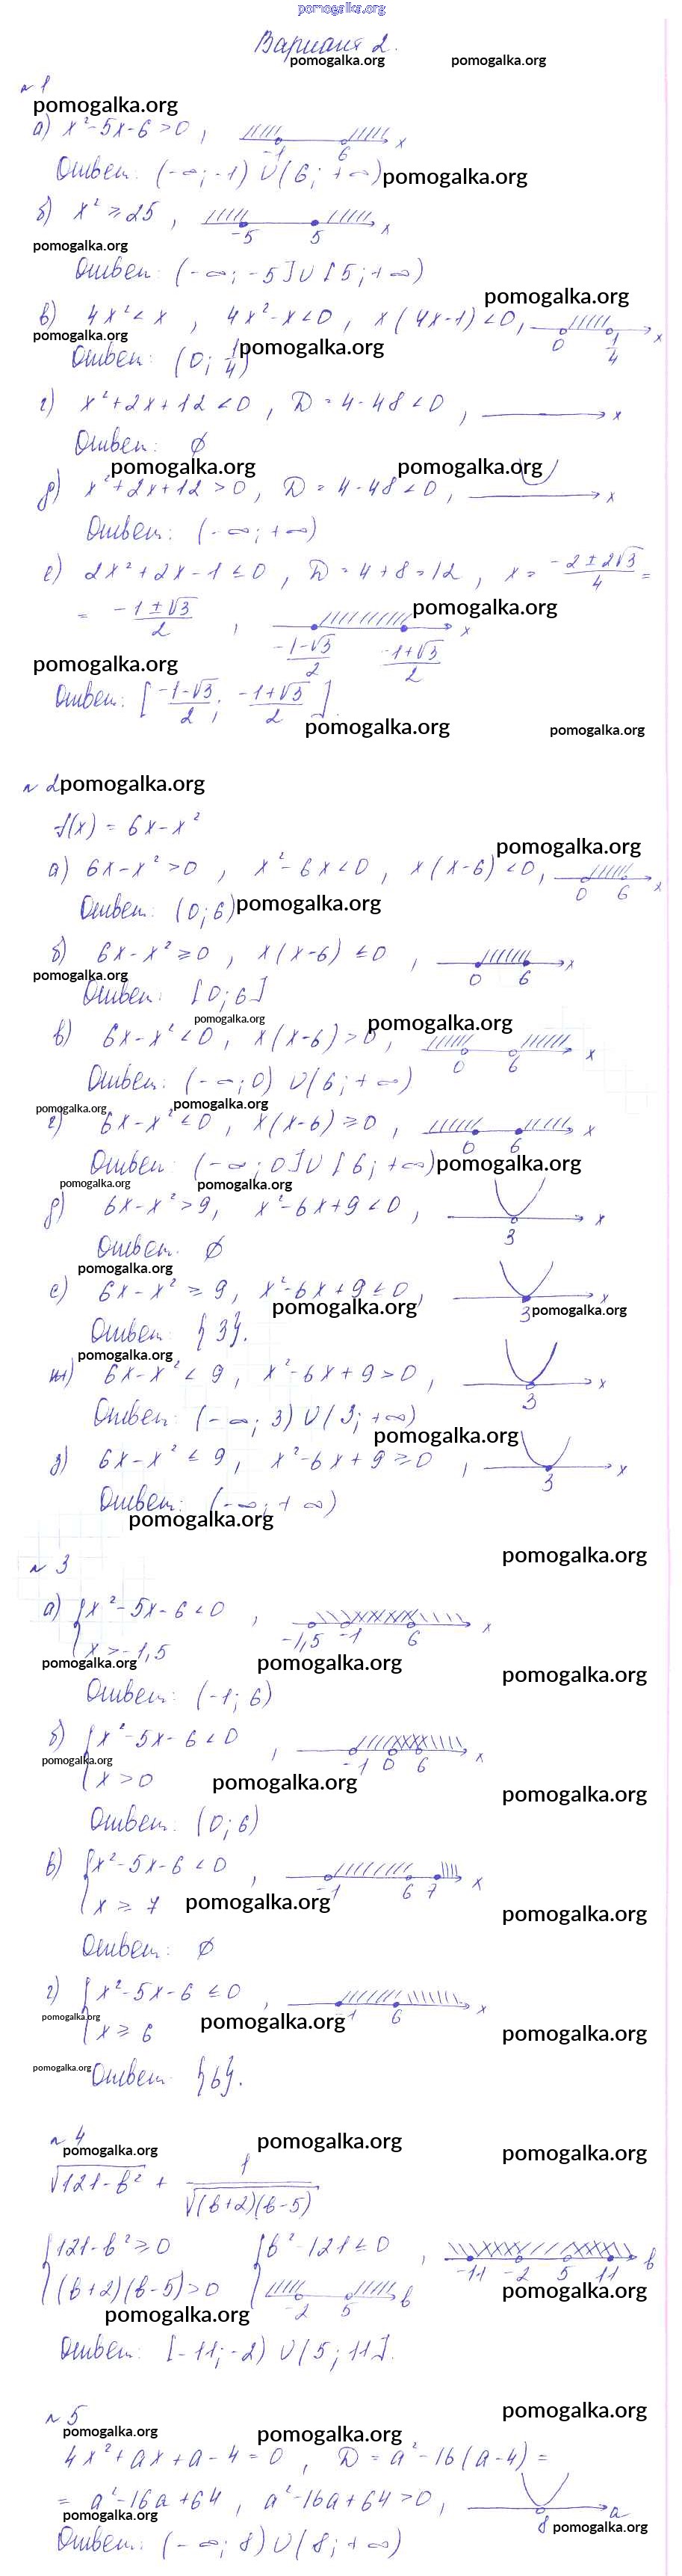 pomogalka.org
Вариант 2.
pomogalka.org pomogalka.org
№1
pomogalka.org
а) x²-5x-6>0, -1 6 x
Ответ: (-∞;-1)∪(6;+∞) pomogalka.org
б) x²≥25, -5 5 x
pomogalka.org
Ответ: (-∞;-5]∪[5;+∞)
pomogalka.org
в) 4x²<x, 4x²-x<0, x(4x-1)<0, 0 1/4 x
pomogalka.org
Ответ: (0; 1/4) pomogalka.org
г) x²+2x+12<0, D=4-48<0, x
Ответ: ∅
pomogalka.org pomogalka.org
д) x²+2x+12>0, D=4-48<0, x
Ответ: (-∞;+∞)
е) 2x²+2x-1≤0, D=4+8=12, x=(-2±2√3)/4=
pomogalka.org
=(-1±√3)/2, (-1-√3)/2 (-1+√3)/2 x
pomogalka.org
Ответ: [(-1-√3)/2; (-1+√3)/2].
pomogalka.org pomogalka.org
№2 pomogalka.org
f(x)=6x-x²
pomogalka.org
а) 6x-x²>0, x²-6x<0, x(x-6)<0, 0 6 x
Ответ: (0;6) pomogalka.org
б) 6x-x²≥0, x(x-6)≤0, 0 6 x
pomogalka.org
Ответ: [0;6]
pomogalka.org pomogalka.org
в) 6x-x²<0, x(x-6)>0, 0 6 x
Ответ: (-∞;0)∪(6;+∞)
pomogalka.org pomogalka.org
г) 6x-x²≤0, x(x-6)≥0, 0 6 x
Ответ: (-∞;0]∪[6;+∞) pomogalka.org
pomogalka.org pomogalka.org
д) 6x-x²>9, x²-6x+9<0, 3 x
Ответ. ∅
pomogalka.org
е) 6x-x²≥9, x²-6x+9≤0, 3 x
pomogalka.org pomogalka.org
Ответ: {3}.
pomogalka.org
ж) 6x-x²<9, x²-6x+9>0, 3 x
Ответ: (-∞;3)∪(3;+∞)
pomogalka.org
з) 6x-x²≤9, x²-6x+9≥0, 3 x
Ответ: (-∞;+∞)
pomogalka.org
pomogalka.org
№3
а) {x²-5x-6<0, -1,5 -1 6 x
x>-1,5
pomogalka.org pomogalka.org pomogalka.org
Ответ: (-1;6)
б) {x²-5x-6<0, -1 0 6 x
pomogalka.org
x>0 pomogalka.org pomogalka.org
Ответ: (0;6)
в) {x²-5x-6<0, -1 6 7 x
x≥7 pomogalka.org pomogalka.org
Ответ: ∅
г) {x²-5x-6≤0, -1 6 x
pomogalka.org
x≥6 pomogalka.org pomogalka.org
pomogalka.org
Ответ: {6}.
№4
pomogalka.org pomogalka.org pomogalka.org
√(121-b²) + 1/√((b+2)(b-5))
{121-b²≥0 {b²-121≤0, -11 -2 5 11 b
(b+2)(b-5)>0 -2 5 b pomogalka.org
pomogalka.org
Ответ: [-11;-2)∪(5;11].
pomogalka.org
№5
pomogalka.org pomogalka.org
4x²+ax+a-4=0, D=a²-16(a-4)=
=a²-16a+64, a²-16a+64>0, 8 a
pomogalka.org pomogalka.org
Ответ: (-∞;8)∪(8;+∞)